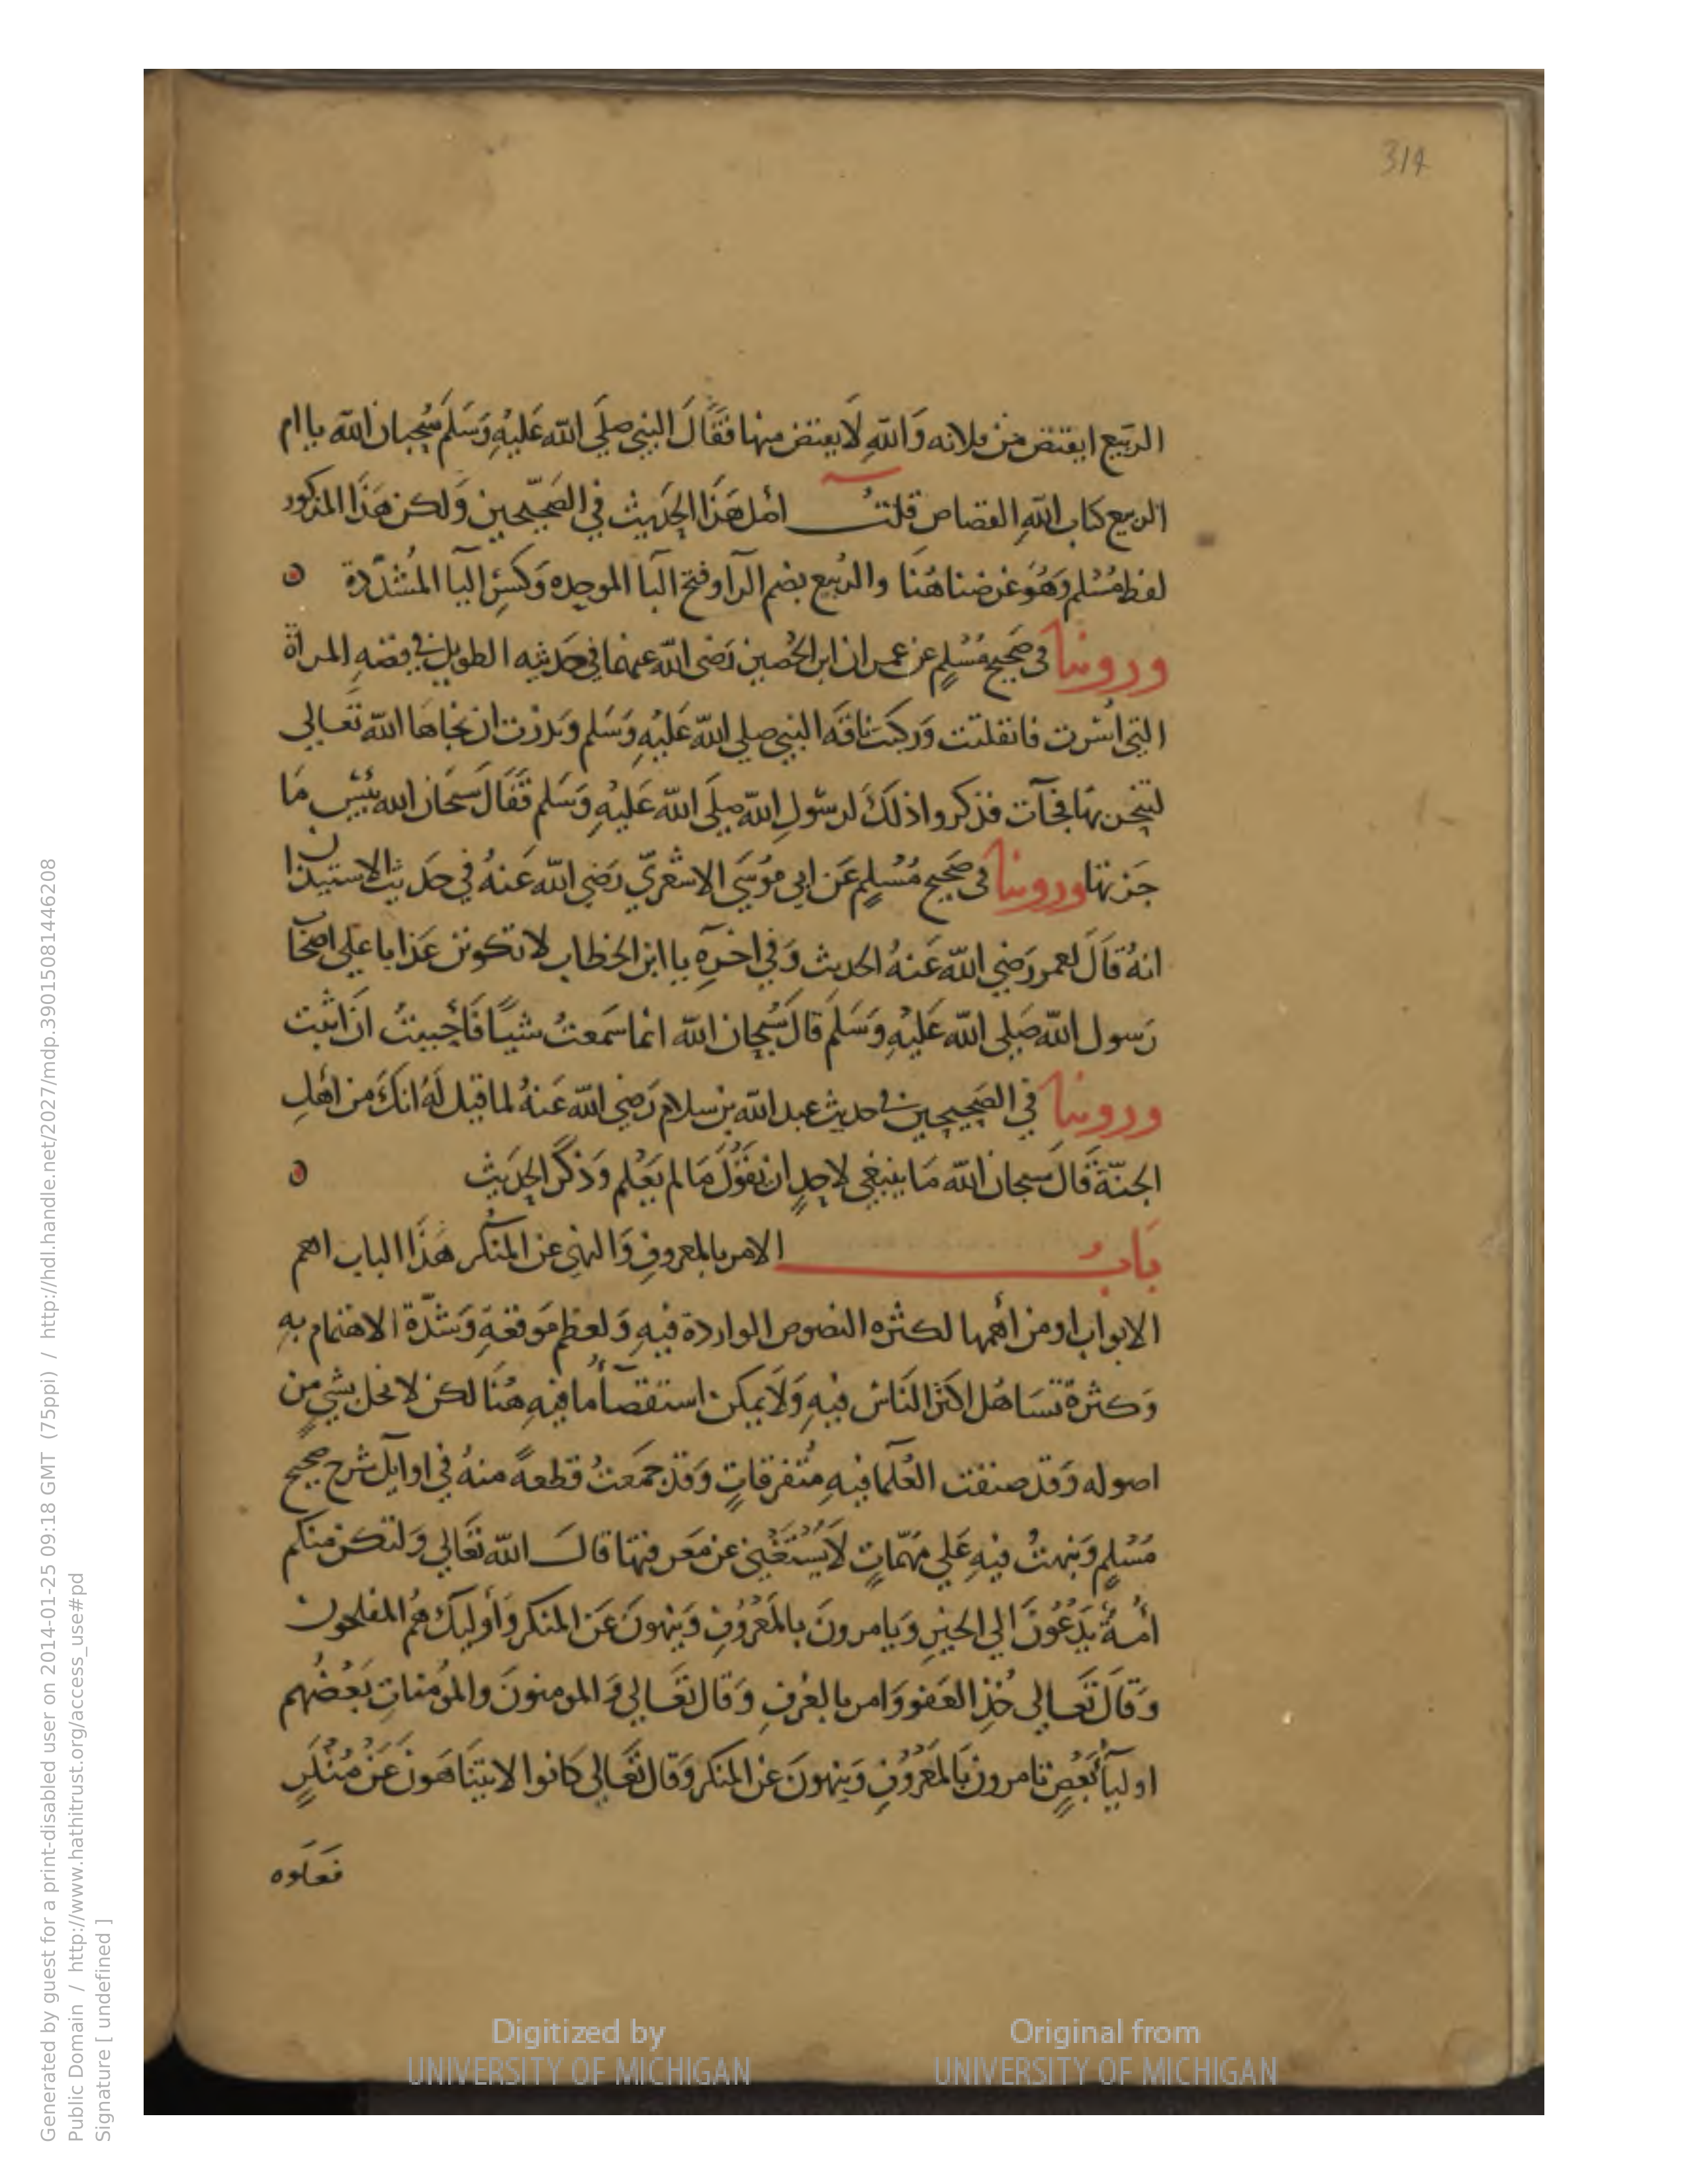 314
الربَيع ايقتض من فلانه وَاللّهِ لَا يقتض منها فقَالَ النبي صلَي اللّه عَليهِ وَسَلمَ سُبحان اللّه يا ام
الربيع كتاب اللّهِ القصاص قلتُ اصل هَذَا الحَديث في الصَحيحين وَلكن هَذَا المذكور
لفظ مُسْلم وَهُوَ غرضنا هُنَا والرُبيع بضم الرآ وفتح البآ الموحده وَكسْر اليآ المُشدّدة
وروينا في صَحيح مُسْلمٍ عن عمران ابن الحُصين رَضي اللّه عنهما في حَديثه الطويل في قصّهِ المرأة
التي اسُرت فانفلتت وَركبَت ناقَه النبي صلي اللّه عَليْهِ وَسَلم وَنذرَت ان نجاهَا اللّه تَعَالي
لتنحرنهَا فجآت فذكروا ذلكَ لرسُولِ اللّه صلَي اللّه عَليهِ وَسَلم فقَالَ سَبحَان الله بئسَ مَا
جزتهَا وروينا في صَحيح مُسْلمٍ عَن ابي مُوسَي الاشعَريّ رَضي اللّه عَنهُ في حَديث الاستيذان
انهُ قَالَ لعمر رَضي اللّه عَنهُ الحديث وَفي اخرِهِ يا ابن الخطاب لا تكونن عَذابا علي اصحَاب
رَسول اللّه صَلي اللّه عَليْهِ وَسَلمَ قالَ سُبحان اللّه انما سَمعتُ شيًا فَأحْببتُ ان اثبت
وروينا في الصَحيحين في حديث عبد اللّه بن سلام رَضي اللّه عَنهُ لما قيل لَهُ انكَ من اهْلِ
الجنّة قَالَ سبحان اللّه مَا ينبَغي لاحدٍ ان يقوُلَ مَا لم يَعْلم وَذكَر الحَديث
بَابُ الامر بالمعروفِ وَالنهي عن المنكر هَذَا الباب اهم
الابواب او من أهمها لكثره النصوص الواردة فيهِ وَلعظم مَوقعَهِ وَشدّة الاهتمام بهِ
وَكثرة تسَاهُل اكثر النَاسُ فيهِ وَلَا يمكن استقصآ ما فيهِ هُنَا لكن لا نخل بشيٍ من
اصوله وَقد صنفت العُلمآ فيهِ مُتفرقاتٍ وَقد جمَعتُ قطعةً منهُ في اوآيل شرح صحيح
مُسْلمٍ وَنبهتُ فيهِ عَلي مهَمّاتٍ لَا يسْتَغْني عن مَعرفتهَا قالَ اللّه تَعَالي وَلتكن منكم
أُمةٌ يَدْعُونَ الي الخيْرِ وَيامرونَ بالمَعْرُوْفِ وَينهونَ عَن المنكر وَأُوليكَ هُم المفلحون
وَقَالَ تَعَالي خُذِ العَفو وَامر بالعُرفِ وَقَال تعَالي وَالمومنونَ والمؤُمناتِ بَعْضُهم
اوليآ بَعْضٍ تامرون بَالمَعْرُوْفِ وَينهونَ عن المنكر وَقال تعَالي كَانوا لا يتنَاهَونَ عَنْ مُنْكَرٍ
فعَلوه
Digitized by
UNIVERSITY OF MICHIGAN
Original from
UNIVERSITY OF MICHIGAN
Generated by guest for a print-disabled user on 2014-01-25 09:18 GMT (75ppi) / http://hdl.handle.net/2027/mdp.39015081446208
Public Domain / http://www.hathitrust.org/access_use#pd
Signature [ undefined ]